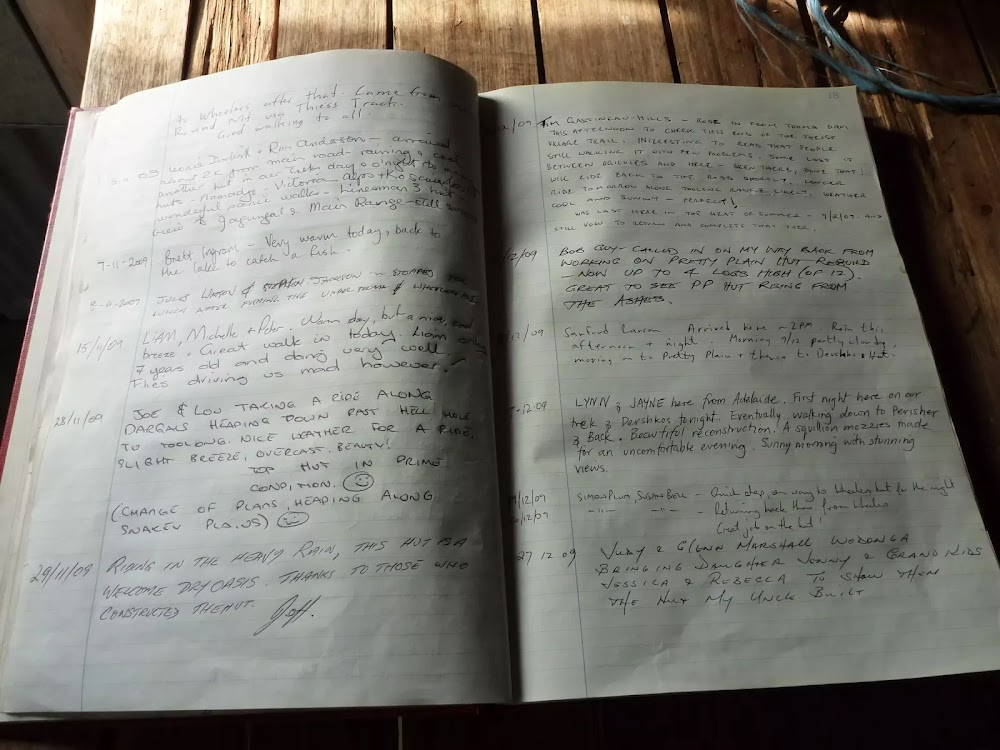 to Wheelers after that. Came from
Round Mt via Thiess Track.
Good walking to all.
Ron Anderson - arrived
from main road - raining & cool
another hut in our
huts - Namadgi - Victoria - Alps
wonderful
view to Jagungal & Main Range - still
7-11-2009 Brett Ingram - Very warm today, back to
the lake to catch a fish.
JULES & STEPHEN JOHNSON - STOPPED FOR
LUNCH AFTER
15/11/09 LIAM, Michelle & Peter. Warm day, but a nice, cool
breeze. Great walk in today. Liam only
7 years old and doing very well.
Flies driving us mad however!
28/11/09 JOE & LOU TAKING A RIDE ALONG
DARGALS HEADING DOWN PAST HELL HOLE
TO TOOLONG. NICE WEATHER FOR A RIDE,
SLIGHT BREEZE, OVERCAST. BEAUTY!
TOP HUT IN PRIME
CONDITION.
(CHANGE OF PLANS, HEADING ALONG
SNAKEY PLAINS)
29/11/09 RIDING IN THE HEAVY RAIN, THIS HUT IS A
WELCOME DRY OASIS. THANKS TO THOSE WHO
CONSTRUCTED THE HUT. Goff.
18
/09 TIM GASTINEAU-HILLS - RODE IN FROM TOOMA DAM
THIS AFTERNOON TO CHECK THIS END OF THE THIESS
VILLAGE TRAIL. INTERESTING TO READ THAT PEOPLE
STILL WALKING IT WITH FEW PROBLEMS. SOME LOST IT
BETWEEN OGILVIES AND HERE - BEEN THERE, DONE THAT!
WILL RIDE BACK TO THE ROAD SHORTLY. LONGER
RIDE TOMORROW ALONG TOOLONG RANGE LIKELY. WEATHER
COOL AND SUNNY - PERFECT!
WAS LAST HERE IN THE HEAT OF SUMMER - 7/2/09. AND
STILL VOW TO RETURN AND COMPLETE THAT TRIP.
/12/09 BOB GUY - CALLED IN ON MY WAY BACK FROM
WORKING ON PRETTY PLAIN HUT REBUILD
- NOW UP TO 4 LOGS HIGH (OF 12)
GREAT TO SEE PP HUT RISING FROM
THE ASHES.
/12/09 Sanford Larson Arrived here ~2PM. Rain this
afternoon & night. Morning 9/12 partly cloudy,
moving on to Pretty Plain & thence to Derschko's Hut.
-12-09 LYNN & JAYNE here from Adelaide. First night here on our
trek & Dershkos tonight. Eventually walking down to Perisher
& Back. Beautiful reconstruction. A squillion mozzies made
for an uncomfortable evening. Sunny morning with stunning
views.
/12/09 SIMON PLUM, SUSAN BELL - Quick stop, on way to Wheelers hut for the night
/12/09 -"- -"- - Returning back from Wheelers
Great job on the hut!
27 12 09 JUDY & GLENN MARSHALL WODONGA
BRINGING DAUGHTER JENNY & GRAND KIDS
JESSICA & REBECCA TO SHOW THEM
THE HUT MY UNCLE BUILT